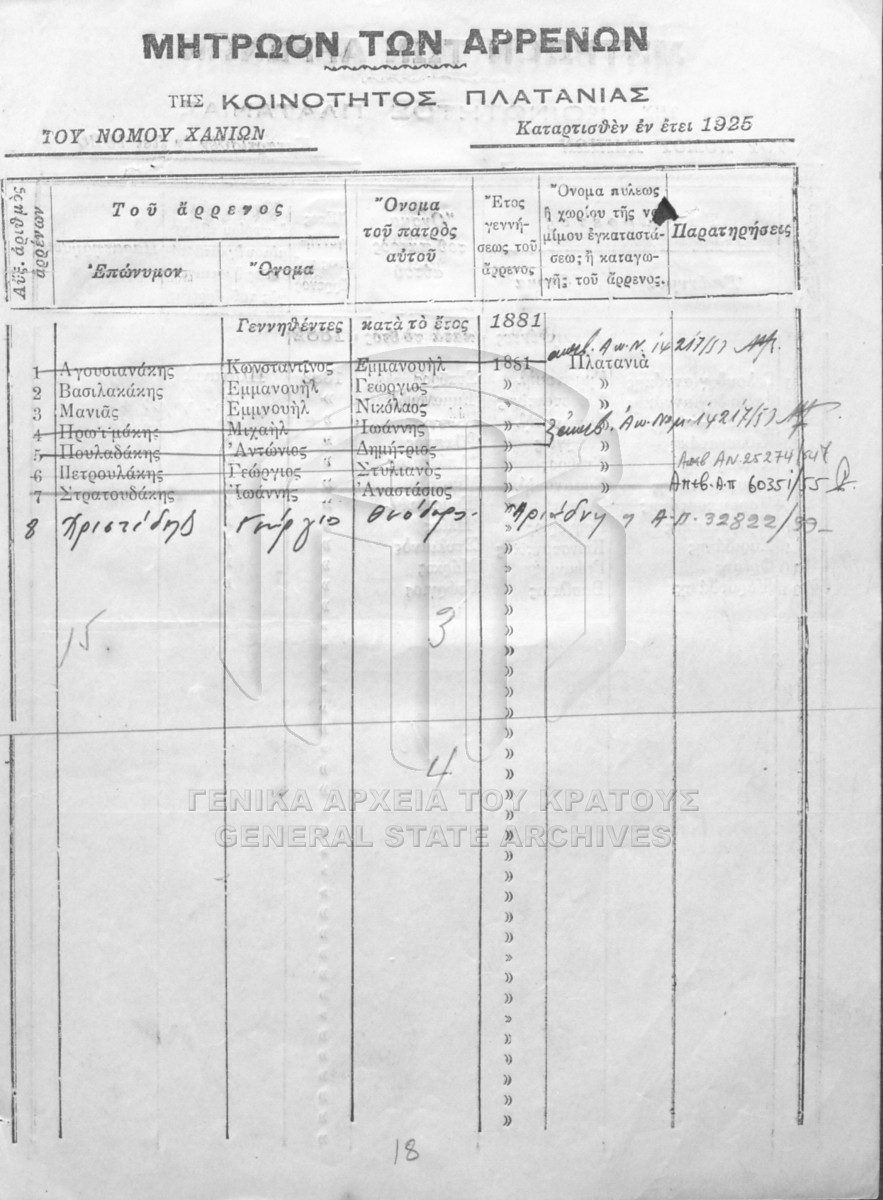 ΜΗΤΡΩΟΝ ΤΩΝ ΑΡΡΕΝΩΝ
ΤΗΣ ΚΟΙΝΟΤΗΤΟΣ ΠΛΑΤΑΝΙΑΣ
ΤΟΥ ΝΟΜΟΥ ΧΑΝΙΩΝ
Καταρτισθὲν ἐν ἔτει 1925
Αὔξ. ἀριθμὸς ἀρρένων
Τοῦ ἄρρενος
Ἐπώνυμον
Ὄνομα
Ὄνομα
τοῦ πατρὸς
αὐτοῦ
Ἔτος
γεννή-
σεως τοῦ
ἄρρενος
Ὄνομα πυλεως
ἢ χωρίου τῆς νο
μίμου ἐγκαταστά-
σεω; ἢ καταγω-
γῆ; τοῦ ἄρρενος.
Παρατηρήσεις
Γεννηθέντες κατὰ τὸ ἔτος 1881
1 Αγουσιανάκης Κωνσταντῖνος Εμμανουὴλ 1881 Πλατανιὰ Α.π.Ν. 14217/57
2 Βασιλακάκης Εμμανουὴλ Γεώργιος » »
3 Μανιᾶς Εμμνουὴλ Νικόλαος » »
4 Μιχαὴλ Ἰωάννης » » Απ. Νομ. 14217/57
5 Πουλαδάκης Ἀντώνιος Δημήτριος » »
6 Πετρουλάκης Γεώργιος Στυλιανὸς » » ΑΝ. 25274
7 Στρατουδάκης Ἰωάννης Ἀναστάσιος » » Απεβ. Α.π 60351/55
8 Χριστίδης Γεώργιο Θεόδωρο Α.Π. 32822/39
»
»
»
»
15 3
»
»
»
»
»
»
»
»
»
»
4
»
»
ΓΕΝΙΚΑ ΑΡΧΕΙΑ ΤΟΥ ΚΡΑΤΟΥΣ
GENERAL STATE ARCHIVES
»
»
»
»
»
»
»
»
»
»
»
»
»
18